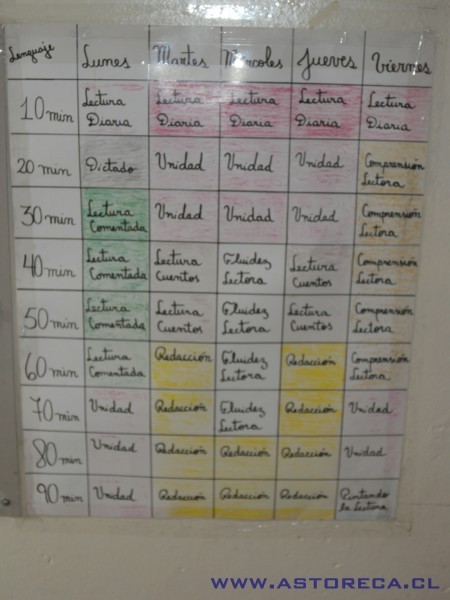 Lenguaje Lunes Martes Miércoles Jueves Viernes
10 min Lectura Diaria Lectura Diaria Lectura Diaria Lectura Diaria Lectura Diaria
20 min Dictado Unidad Unidad Unidad Comprensión Lectora
30 min Lectura Comentada Unidad Unidad Unidad Comprensión Lectora
40 min Lectura Comentada Lectura Cuentos Fluidez Lectora Lectura Cuentos Comprensión Lectora
50 min Lectura Comentada Lectura Cuentos Fluidez Lectora Lectura Cuentos Comprensión Lectora
60 min Lectura Comentada Redacción Fluidez Lectora Redacción Comprensión Lectora
70 min Unidad Redacción Fluidez Lectora Redacción Unidad
80 min Unidad Redacción Redacción Redacción Unidad
90 min Unidad Redacción Redacción Redacción Pintando la Lectura
WWW.ASTORECA.CL